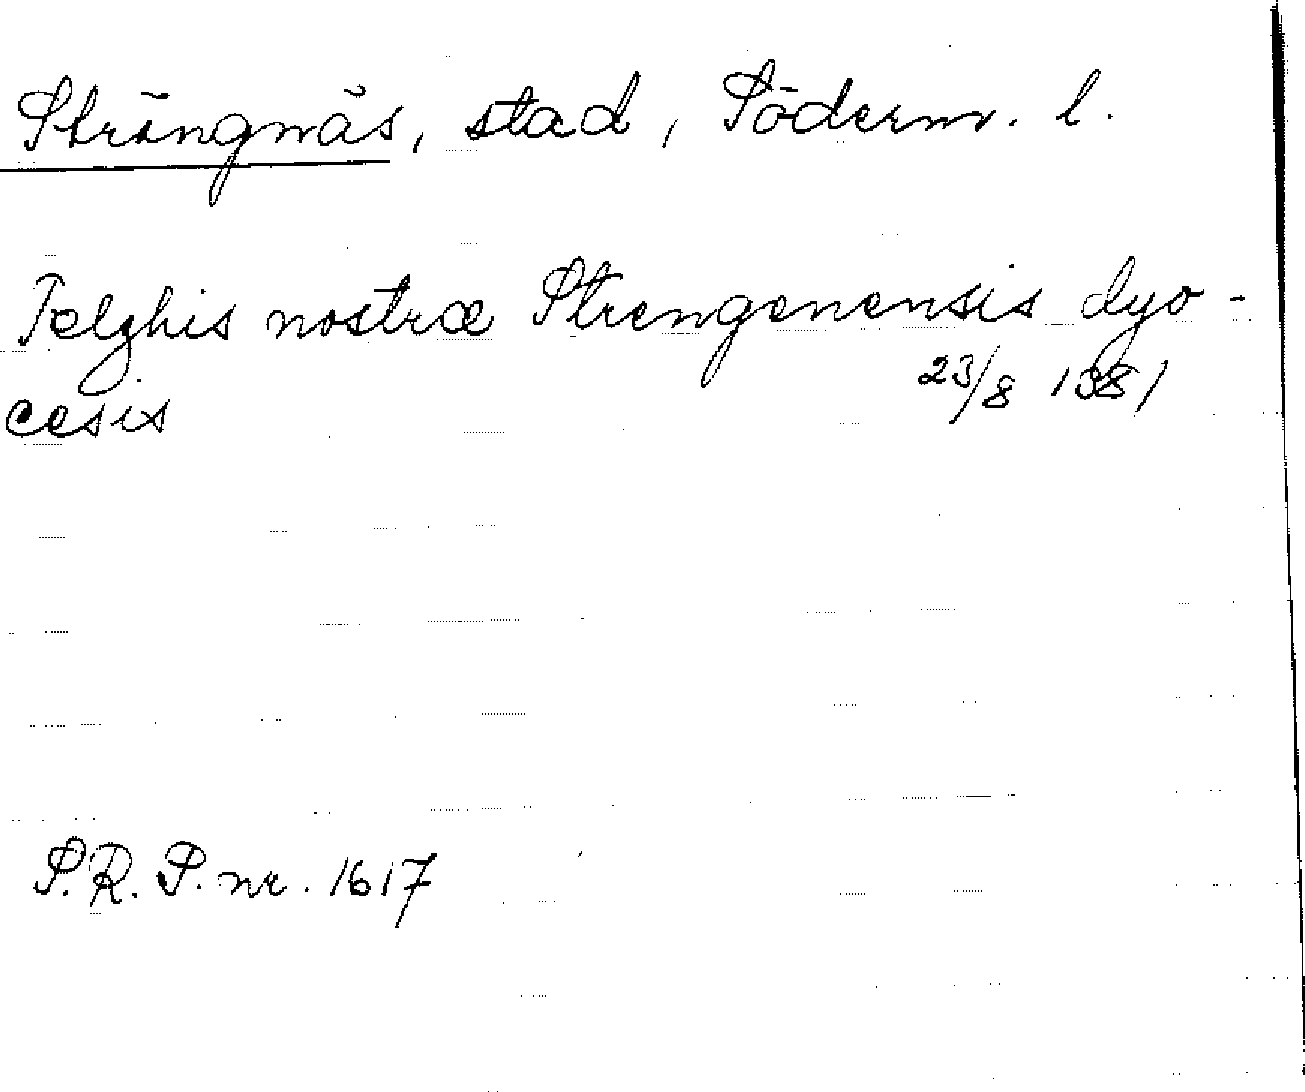 Strängnäs, stad, Söderm. l.
Telghis nostræ Strengenensis dyo-
cesis 23/8 1381
S.R.P. nr. 1617